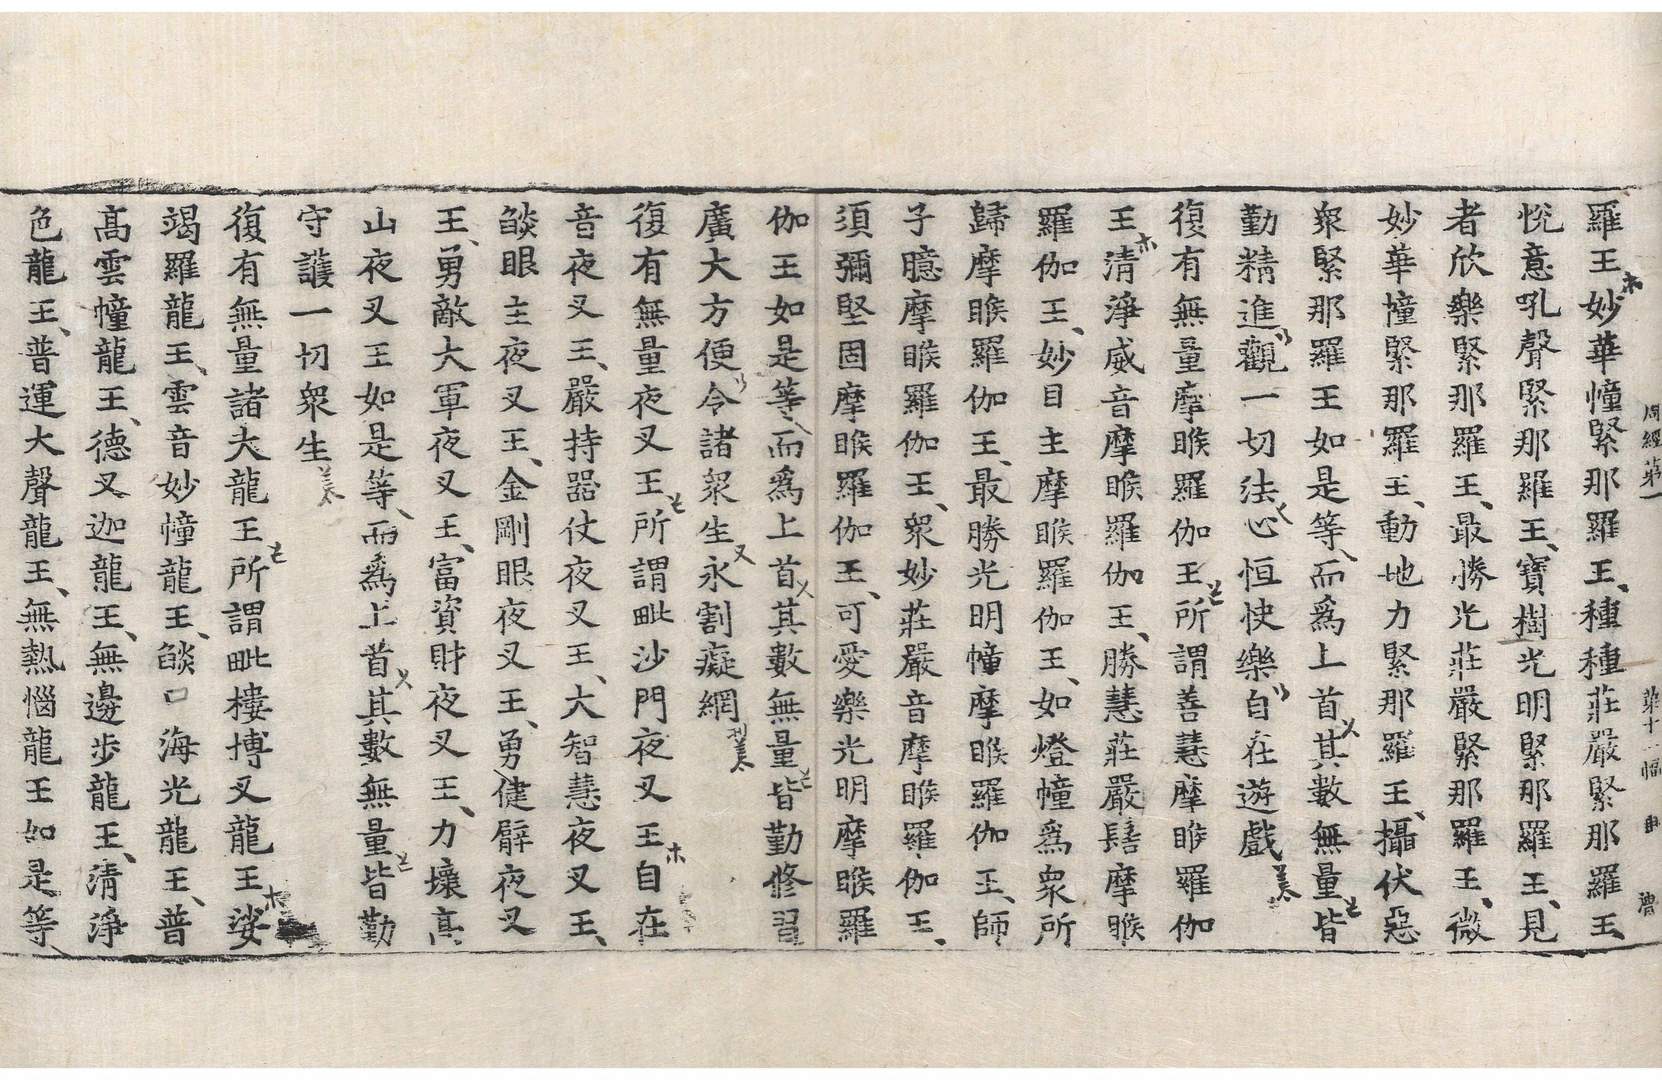 周經第一 第十一幅
羅王妙華幢緊那羅王種種莊嚴緊那羅王
悅意吼聲緊那羅王寶樹光明緊那羅王見
者欣樂緊那羅王最勝光莊嚴緊那羅王微
妙華幢緊那羅王動地力緊那羅王攝伏惡
衆緊那羅王如是等而爲上首其數無量皆
勤精進觀一切法心恒快樂自在遊戲
復有無量摩睺羅伽王所謂善慧摩睺羅伽
王清淨威音摩睺羅伽王勝慧莊嚴髻摩睺
羅伽王妙目主摩睺羅伽王如燈幢爲衆所
歸摩睺羅伽王最勝光明幢摩睺羅伽王師
子臆摩睺羅伽王衆妙莊嚴音摩睺羅伽王
須彌堅固摩睺羅伽王可愛樂光明摩睺羅
伽王如是等而爲上首其數無量皆勤修習
廣大方便令諸衆生永割癡網
復有無量夜叉王所謂毗沙門夜叉王自在
音夜叉王嚴持器仗夜叉王大智慧夜叉王
燄眼主夜叉王金剛眼夜叉王勇健臂夜叉
王勇敵大軍夜叉王富資財夜叉王力壞高
山夜叉王如是等而爲上首其數無量皆勤
守護一切衆生
復有無量諸大龍王所謂毗樓博叉龍王娑
竭羅龍王雲音妙幢龍王燄口海光龍王普
高雲幢龍王德叉迦龍王無邊步龍王清淨
色龍王普運大聲龍王無熱惱龍王如是等